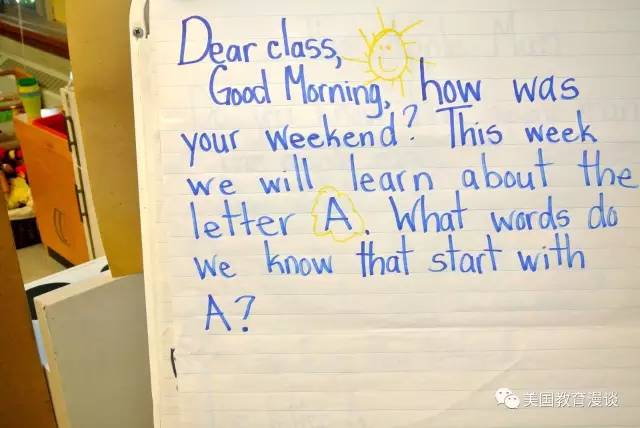 Dear class,
Good Morning, how was
your weekend? This week
we will learn about the
letter A. What words do
we know that start with
A?
美国教育漫谈